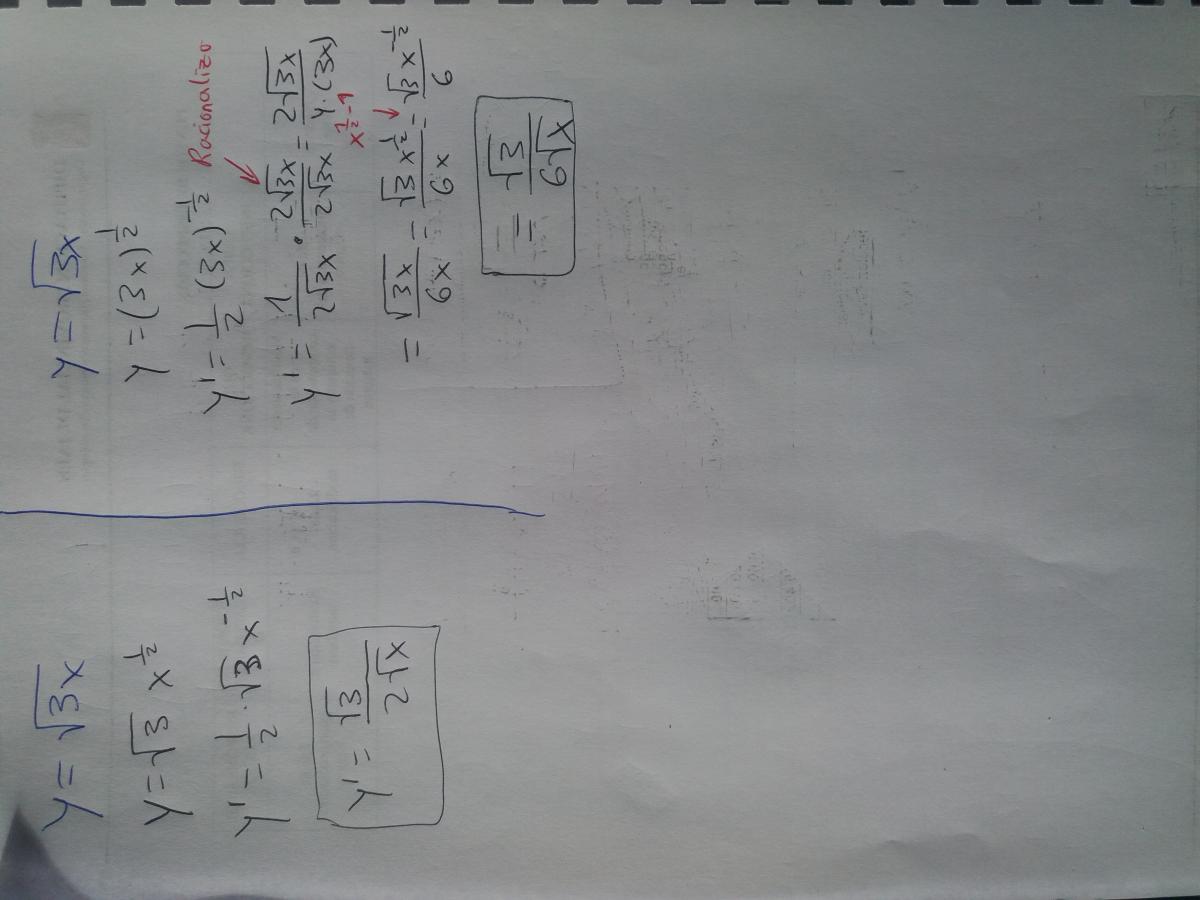 y = √3x
y = √3 x^(1/2)
y' = 1/2 · √3 x^(-1/2)
y' = √3 / 2√x
y = √3x
y = (3x)^(1/2)
y' = 1/2 (3x)^(-1/2) Racionalizo
y' = 1 / 2√3x · 2√3x / 2√3x = 2√3x / 4·(3x)
x^(1/2 - 1)
= √3x / 6x = √3 x^(1/2) / 6x = √3 x^(-1/2) / 6
= √3 / 6√x